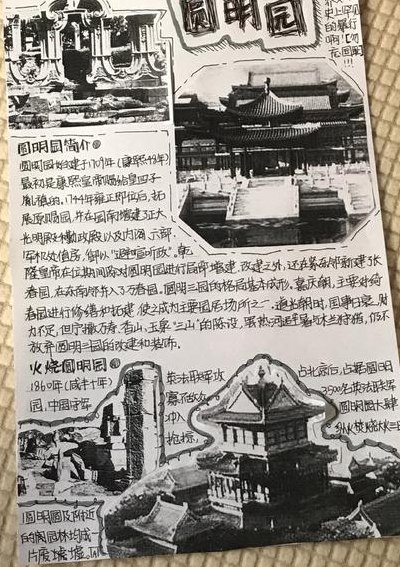 圆明园
史上罕见
的暴行
啊!【勿
忘国耻】
!!!
圆明园简介
圆明园始建于1709年(康熙48年)
最初是康熙皇帝赐给皇四子
胤禛的,1744年雍正即位后,拓
展原赐园,并在园南增建正大
光明殿和勤政殿以及内阁、六部、
军机处值房,御以“避喧听政”。乾
隆皇帝在位期间除对圆明园进行局部增建、改建之外,还在紧东邻新建长
春园,在东南邻并入了万春园。圆明三园的格局基本形成。嘉庆朝,主要对绮
春园进行修缮和拓建,使之成为主要园居场所之一。道光朝时,国事日衰,财
力不足,但宁撤万寿、香山、玉泉“三山”的陈设,罢热河避暑与木兰狩猎,仍不
放弃圆明三园的改建和装饰。
火烧圆明园
1860年(咸丰十年) 英法联军攻 占北京后,占据圆明
园,中国守军 寡不敌众 3500名英法联军
冲入 圆明园大肆
抢掠, 纵火焚烧大火三日
圆明园及附近
的园林均成一
片废墟墟。